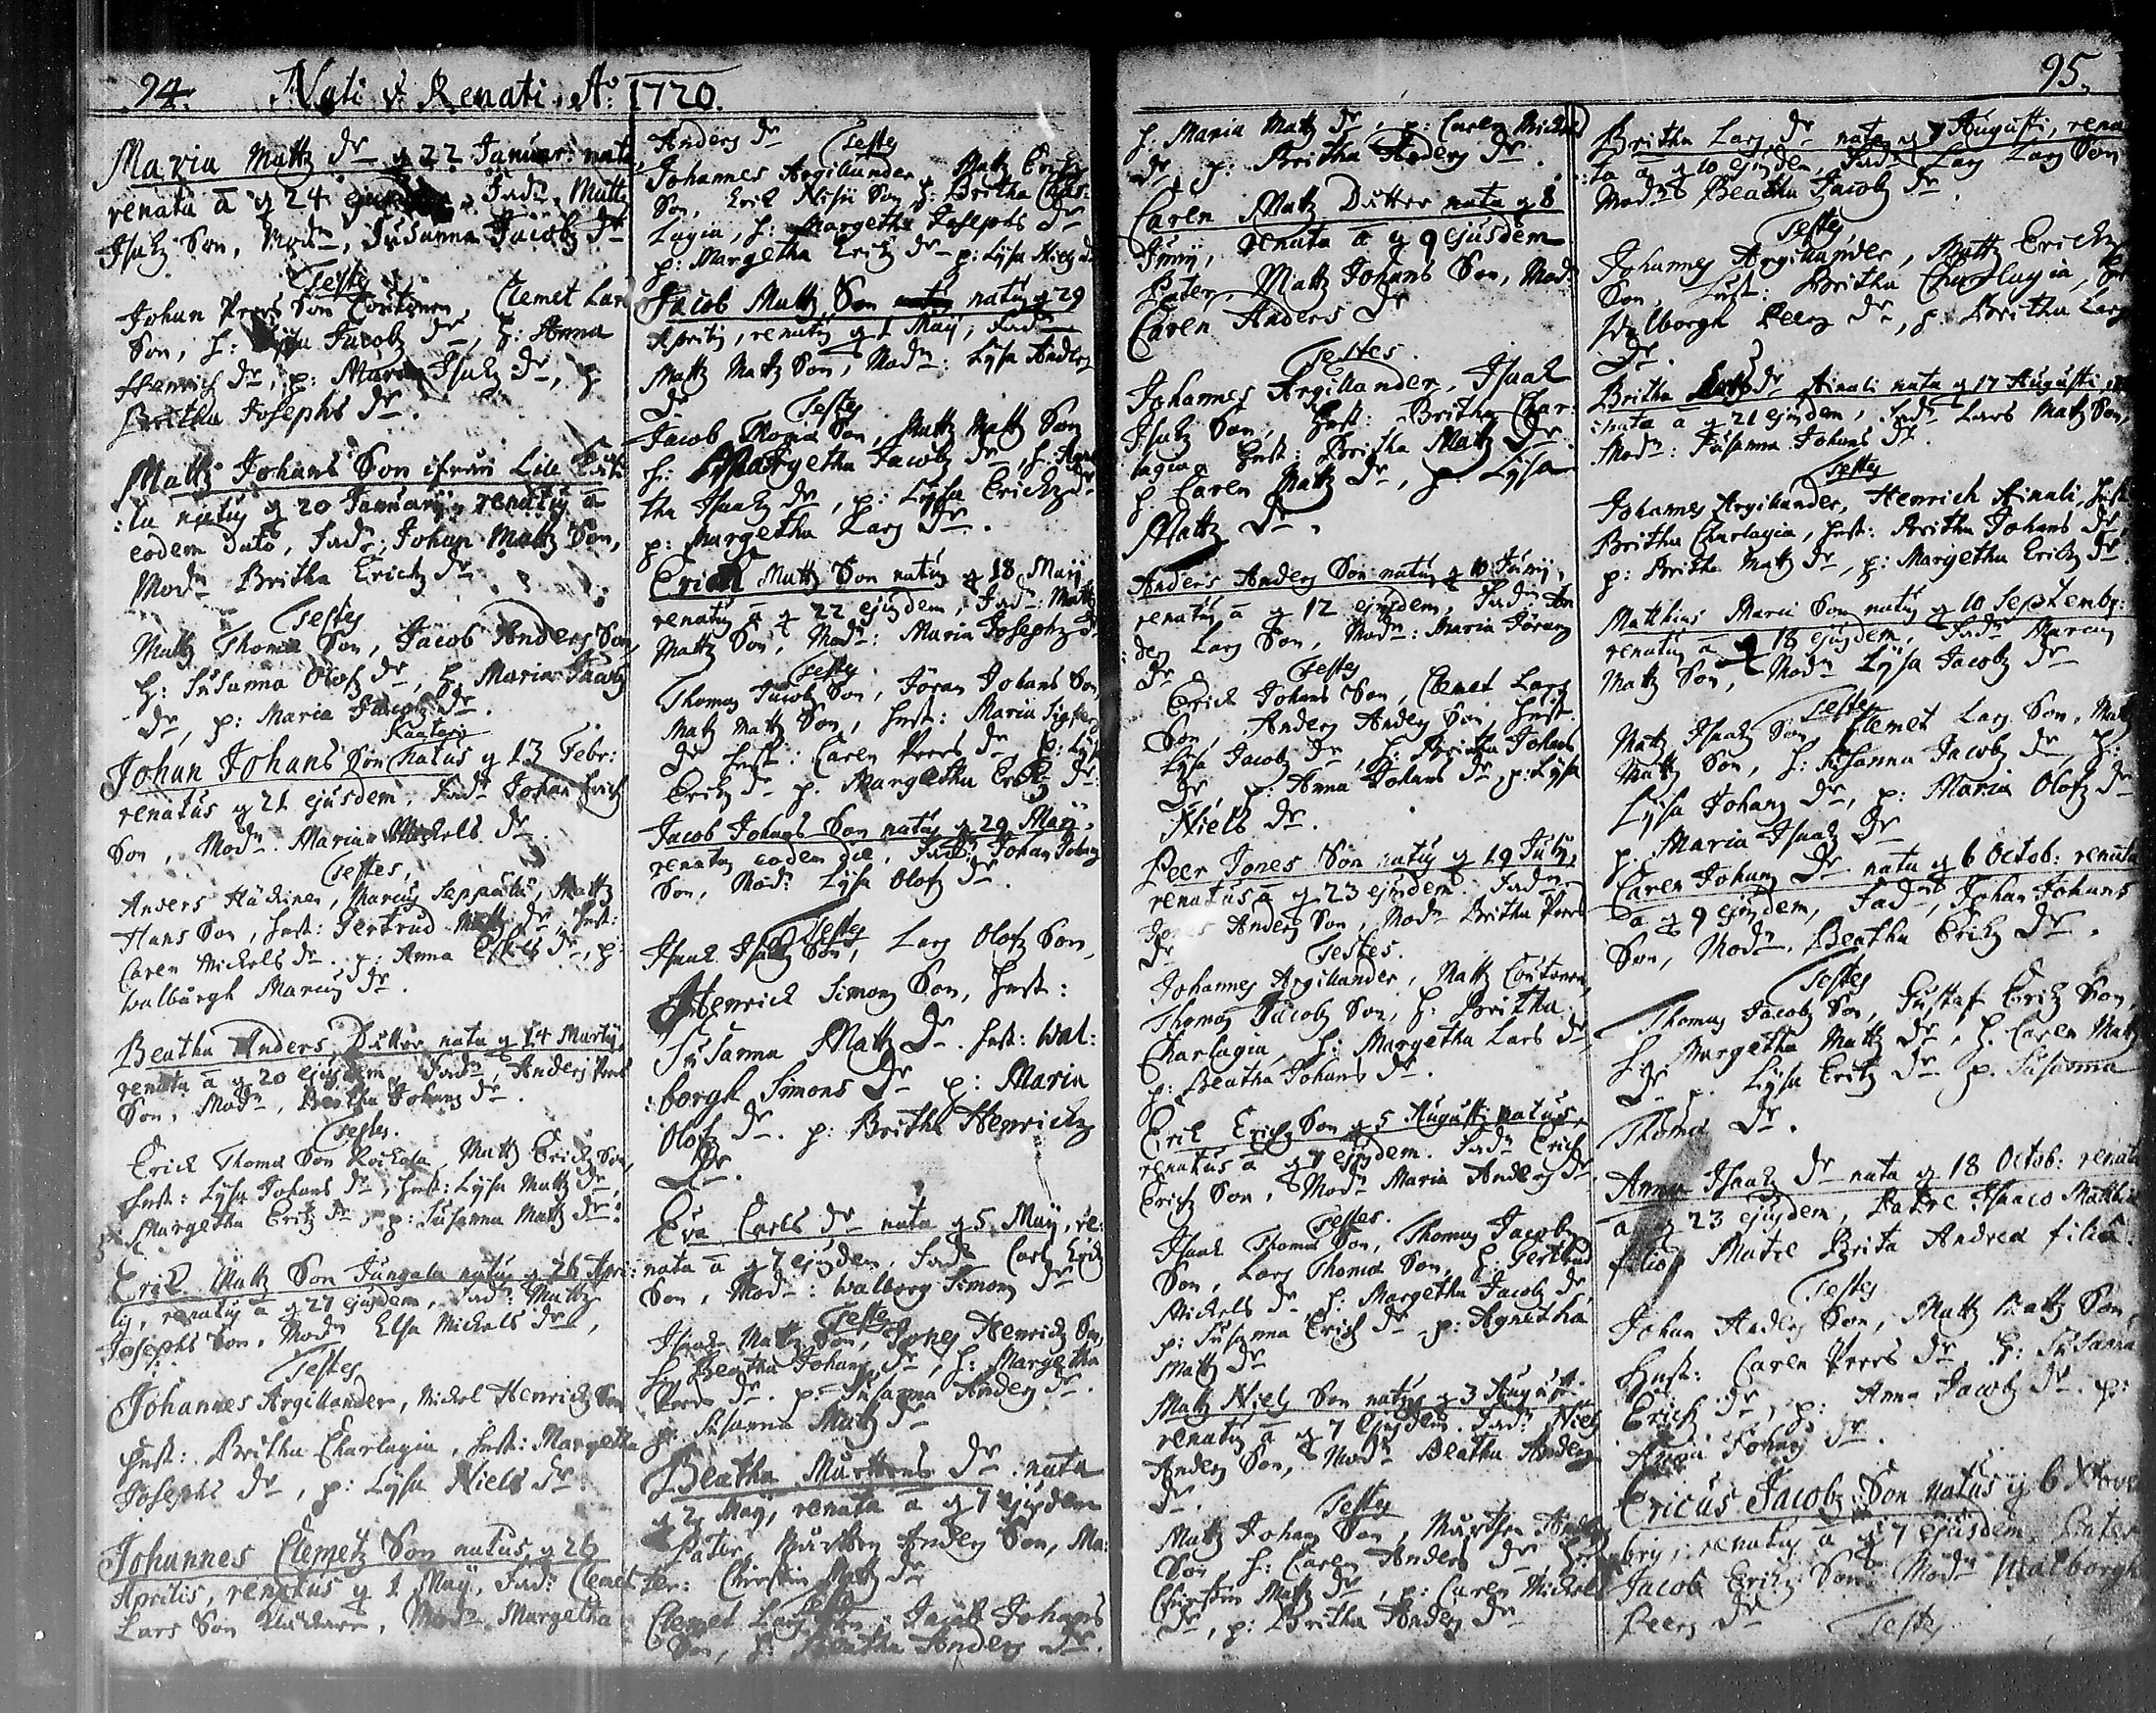 94. Nati & Renati Aº: 1720.
Maria Mattz dr d 22 Januar: nata
renata a d 24 Fadr. Mattz
Isakz Son, Modr, Susanna Jacobz dr
Testes
Johan Peers Son Contonen, Clemet Lars
Son, h: Jacobz dr, h: Anna
Henrichs dr, p: Maria Isakz dr, p
Britha Josephs dr.
Mattz Johans Son ifrån Lill
:la natus d 20 January, renatus a
eodem dato, Fadr: Johan Mattz Son,
Modr Britha Erichz dr
Testes
Mattz Thomæ Son, Jacob Anders Son,
H: Susanna Olofz dr, H. Maria Jacobz
dr, p: Maria Jacobz dr.
Kaatari
Johan Johans Son natus d 13 Febr:
renatus d 21 ejusdem. Fadr Johan Erichz
Son, Modr. Maria Mickels dr.
Testes,
Anders Häckinen, Marcus Seppälä, Mattz
Hans Son, Hust: Gertrud Mattz dr, Hust:
Caren Mickels dr. p: Anna Eskels dr, p:
Walburgh Marcus dr.
Beatha Anders Dotter nata d 14 Martij
renata a d 20 ejusdem Fadr, Anders Peers
Son, Modr, Beatha Johans dr.
Testes.
Erick Thomæ Son Rockola, Mattz Erichz Son,
Hust: Lÿsa Johans dr, Hust: Lÿsa Mattz dr,
Margetha Erichz dr, p: Susanna Mattz dr.
Erich Mattz Son Jungala natus d 26 Apri:
lis, renatus a d 27 ejusdem, Fadr: Mattz
Josephs Son, Modr Elsa Mickels dr,
Testes
Johannes Argillander, Mickel Henrichz Son
Hust: Britha Charlagia, Hust: Margetha
Josephs dr, p: Lÿsa Niels dr.
Johannes Clemetz Son natus d 26
Aprilis, renatus d 1 Maÿ, Fadr: Clemet
Lars Son, Modr Margetha
Anders dr
Testes
Johannes Argillander, Mattz Erichz
Son, Erick Son, H: Britha Char:
lagia, H: Margetha Josephs dr
p: Margetha Erichz dr p: Lÿsa Niels dr
Jacob Mattz Son natus d 29
Aprilis, renatus d 1 Maÿ, Fadr
Mattz Mattz Son, Modr: Lÿsa Anders
Dr
Testes
Jacob Thomæ Son, Mattz Mattz Son
H: Margetha Jacobz dr, H: Agne
tha Isaakz dr, p: Lÿsa Erichz dr
p: Margetha Lars dr.
Erich Mattz Son natus d 18 Maÿ
renatus a d 22 ejusdem, Fadr: Mattz
Mattz Son, Modr: Maria Josephz dr
Testes
Thomas Jacob Son, Jöran Johans Son
Matz Mattz Son, Hust: Maria Sigfers
dr Hust: Caren Peers dr, p: Lÿsa
Erichz dr p. Margetha Erichz dr.
Jacob Johans Son natus d 29 Maÿ,
renatus eodem die, Fadr: Johan Johans
Son, Modr: Lÿsa Olofz dr.
Testes
Isaak Isakz Son, Lars Olofz Son,
Henrich Simons Son, Hust:
Susanna Mattz Dr. Hust: Wal:
:borgh Simons Dr p: Maria
Olofz dr. p: Britha Henrichz
Dr.
Eva Carls dr nata d 5 Maÿ, re:
nata a d 7 ejusdem, Fadr Carl Erichz
Son, Modr: Walborg Simons dr
Testes
Isaak Mattz Son, Jones Henrichz Son,
H: Beatha Johans dr, H: Margetha
Peers dr. p: Susanna Anders dr.
p: Susanna Mattz dr
Beatha Mårthens dr nata
d 2 Maÿ, renata a d 7 ejusdem
Pater, Mårthen Anders Son, Ma:
ter: Christin Mattz dr
Testes
Clemet Lars Son, Jacob Johans
Son, H: Beatha Anders dr.
95.
H. Maria Mattz dr, p: Caren Mickels
dr, p: Britha Anders dr.
Caren Mattz Dotter nata d 8
Junij, renata a d 9 ejusdem
Pater, Mattz Johans Son, Modr
Caren Anders dr
Testes.
Johannes Argillander, Isaak
Isakz Son, Hust: Britha Char:
lagia, Hust: Britha Mattz Dr.
p. Caren Mattz dr, p. Lÿsa
Mattz Dr.
Anders Anders Son natus d 10 Junij,
renatus a d 12 ejusdem, Fadr An
:ders Lars Son, Modr: Maria Jörans
Dr
Testes
Erick Johans Son, Clemet Lars
Son, Anders Anders Son, Hust.
Lÿsa Jacobz dr, H: Britha Johans
dr, p: Anna Johans dr, p: Lÿsa
Niels dr.
Peer Jones Son natus d 19 Julij,
renatus a d 23 ejusdem Fadr.
Jones Anders Son, Modr Britha Peers
dr
Testes.
Johannes Argillander, Mattz Contonen,
Thomas Jacobz Son, H: Britha
Charlagia, H: Margetha Lars dr
p: Beatha Johans dr.
Erik Erichz Son d 5 Augusti natus,
renatus a d 7 ejusdem. Fadr Erich
Erichz Son, Modr Maria Anders dr
Testes.
Isaak Thomæ Son, Thomas Jacobz
Son, Lars Thomæ Son, H: Gertrud
Mickels dr H. Margetha Jacobz dr,
p: Susanna Erichz dr, p: Agnetha
Mattz dr
Mattz Niels Son natus d 3 August.
renatus a d 7 ejusdem. Fadr Niels
Anders Son, Modr Beatha Anders
dr.
Testes
Mattz Johans Son, Mårthen Anders
Son H: Caren Anders dr, H:
Christin Mattz dr, p: Caren Mickels
dr, p: Britha Anders dr
Britha Lars dr nata d 7 Augusti, rena
:ta a d 10 ejusdem, Fadr Lars Lars Son
Modr Beatha Jacobz dr.
Testes
Johannes Argillander, Mattz Erichz
Son, Hust: Britha Charlagia,
Walborgh Peers dr, p: Britha Lars
Dr.
Britha Lars dr Ainali nata d 17 Augusti
:nata a d 21 ejusdem, Fadr Lars Mattz Son,
Modr: Susanna Johans dr.
Testes
Johannes Argillander, Henrich Ainali, Hust
Britha Charlagia, Hust: Britha Johans dr
p: Britha Mattz dr, p: Margetha Erichz dr
Matthias Marci Son natus d 10 Septembr:
renatus a d 18 ejusdem, Fadr Marcus
Mattz Son, Modr Lÿsa Jacobz dr
Testes
Mattz Isaakz Son, Clemet Lars Son, Mattz
Mattz Son, H: Susanna Jacobz dr, H:
Lÿsa Johans dr, p: Maria Olofz dr
p. Maria Isaakz Dr
Caren Johans Dr nata d 6 Octob: renata
a d 9 ejusdem, Fadr, Johan Johans
Son, Modr. Beatha Erichz Dr.
Testes
Thomas Jacobz Son, Gustaf Erichz Son,
H: Margetha Mattz dr, H. Caren Mattz
Dr p. Lÿsa Erichz dr p. Susanna
Thomæ Dr.
Anna Isaakz dr nata d 18 Octob: renata
a d 23 ejusdem, Patre Isaaco Matthiæ
filio, Matre Brita Andreæ filia.
Testes
Johan Anders Son, Mattz Mattz Son,
Hust: Caren Peers dr, H: Susanna
Erichz dr, p: Anna Jacobz dr. p:
Anna Johans dr.
Ericus Jacobz Son natus d 6 Nove
:bris, renatus a d 7 ejusdem. Pater
Jacob Erichz Son, Modr Walborgh
Peers dr
Testes